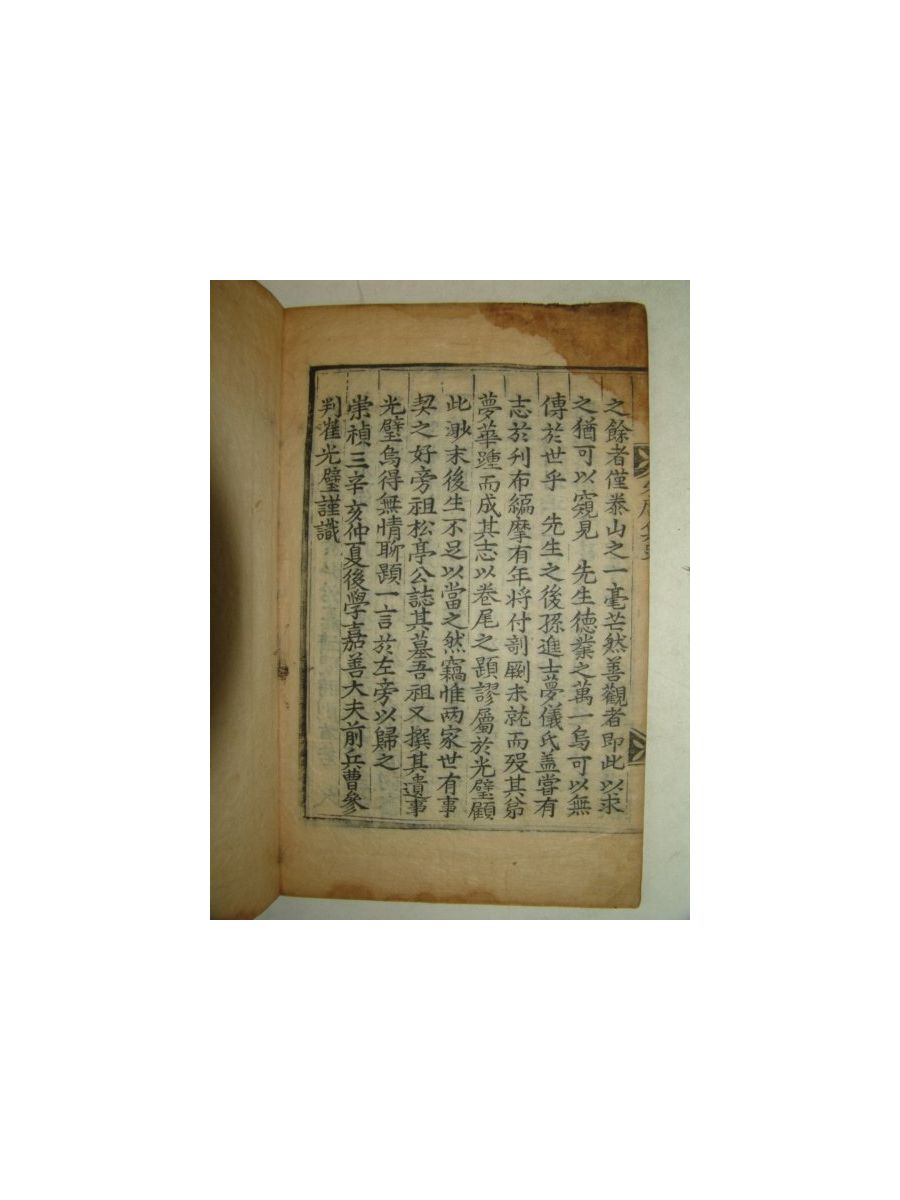 之餘者僅泰山之一毫芒然善觀者即此以求
之猶可以窺見　先生德業之萬一烏可以無
傳於世乎　先生之後孫進士夢儀氏盖嘗有
志於刊布編摩有年将付剞劂未就而歿其弟
夢華踵而成其志以卷尾之題謬屬於光璧顧
此眇末後生不足以當之然竊惟两家世有事
契之好旁祖松亭公誌其墓吾祖又撰其遺事
光璧烏得無情聊題一言於左旁以歸之
崇禎三辛亥仲夏後學嘉善大夫前兵曹參
判崔光璧謹識